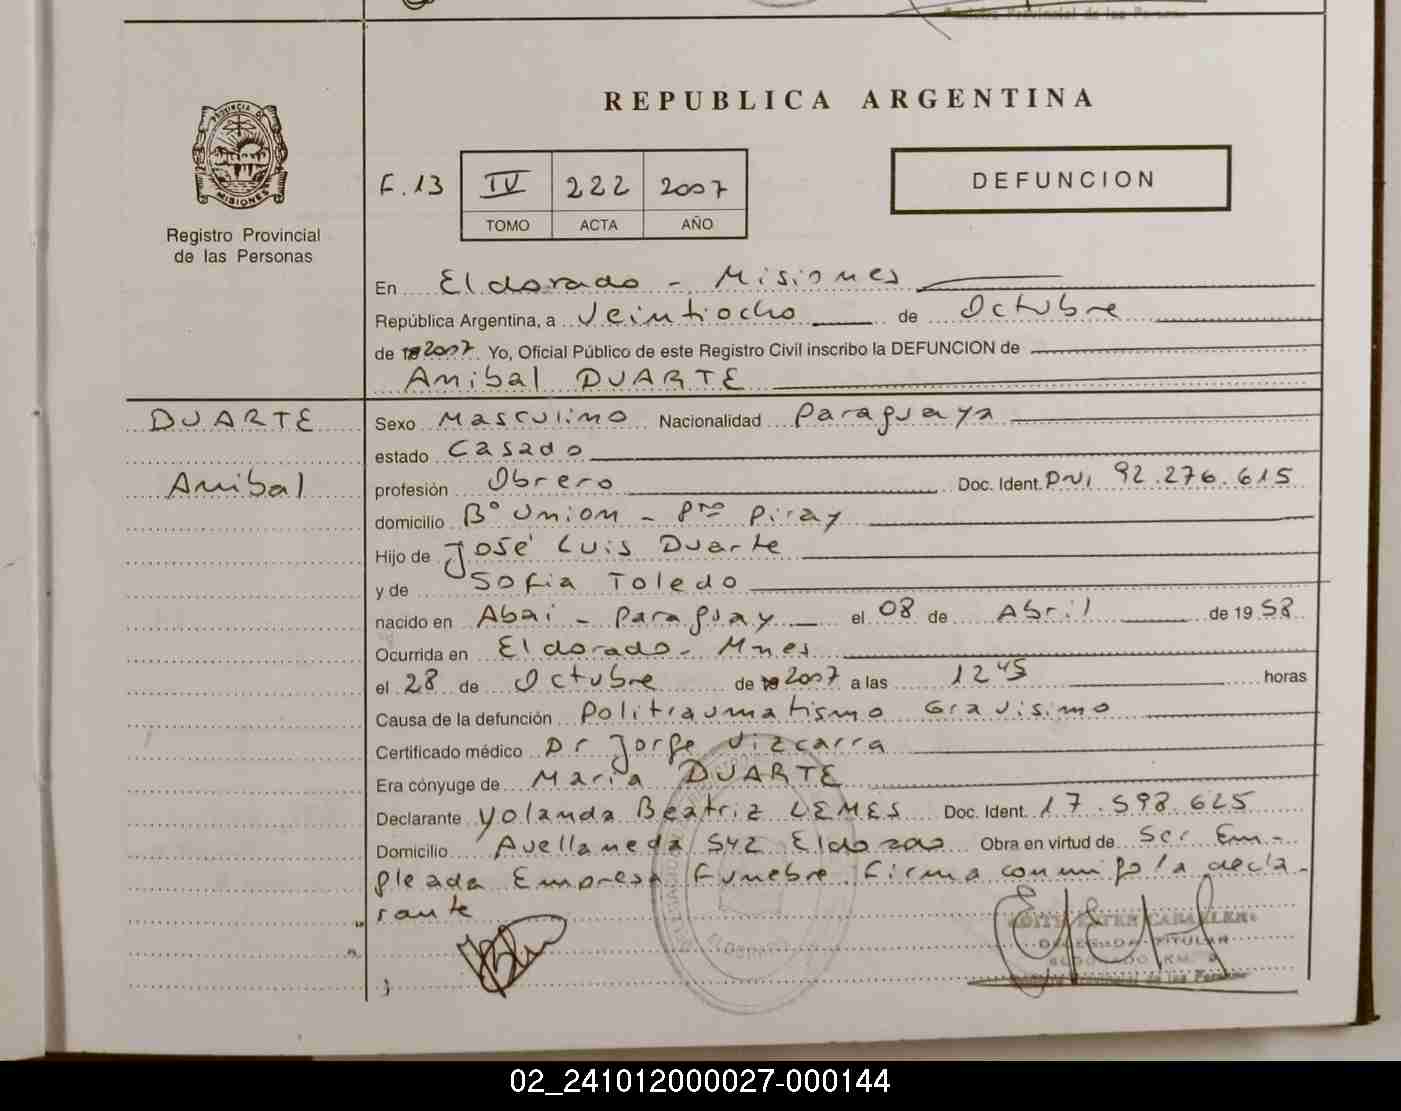 REPUBLICA ARGENTINA
PROVINCIA DE
MISIONES
Registro Provincial
de las Personas
F.13 IV 222 2007
TOMO ACTA AÑO
DEFUNCION
En Eldorado - Misiones
República Argentina, a Veintiocho de Octubre
de 2007 Yo, Oficial Público de este Registro Civil inscribo la DEFUNCION de
Anibal DUARTE
DUARTE
Anibal
Sexo Masculino Nacionalidad Paraguaya
estado Casado
profesión Obrero Doc. Ident. DNI 92.276.615
domicilio Bº Union - Pto Piray
Hijo de José Luis Duarte
y de Sofia Toledo
nacido en Abai - Paraguay el 08 de Abril de 1958
Ocurrida en Eldorado - Mnes
el 28 de Octubre de 2007 a las 12 45 horas
Causa de la defunción Politraumatismo Gravisimo
Certificado médico Dr Jorge Vizcarra
Era cónyuge de Maria DUARTE
Declarante Yolanda Beatriz LEMES Doc. Ident. 17.598.625
Domicilio Avellaneda 542 Eldorado Obra en virtud de Ser Em-
pleada Empresa Funebre. Firma conmigo la decla-
rante
DELEGADA TITULAR
02_241012000027-000144